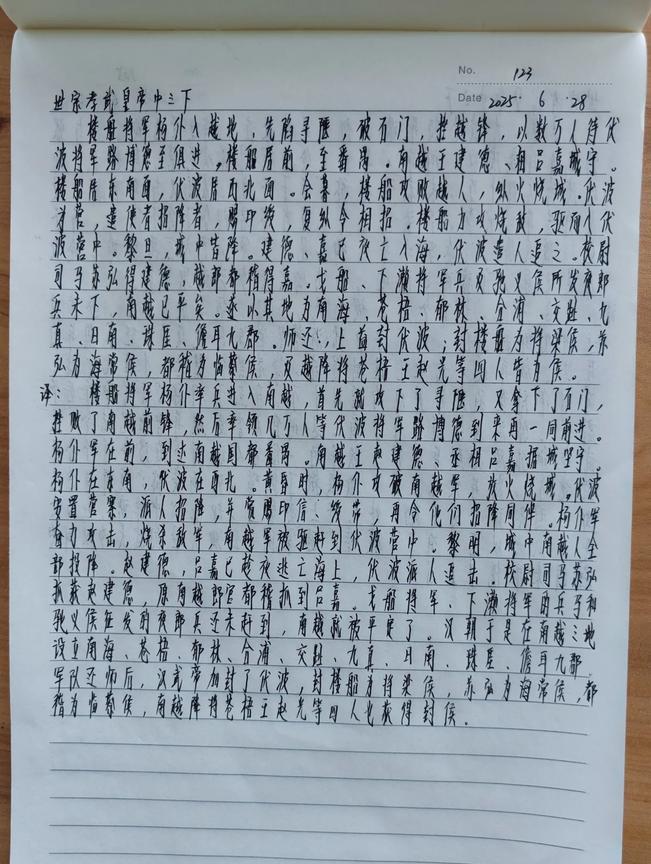 No. 123
Date 2025. 6. 28
世宗孝武皇帝中之下
楼船将军杨仆入越地，先陷寻陿，破石门，挫越锋，以数万人待伏
波将军路博德至俱进。楼船居前，至番禺。南越王建德、相吕嘉城守。
楼船居东南面，伏波居西北面。会暮，楼船攻败越人，纵火烧城。伏波
为营，遣使者招降者，赐印绶，复纵令相招。楼船力攻烧敌，驱而入伏
波营中。黎旦，城中皆降。建德、嘉已夜亡入海，伏波遣人追之。校尉
司马苏弘得建德，越郎都稽得嘉。戈船、下濑将军兵及驰义侯所发夜郎
兵未下，南越已平矣。遂以其地为南海、苍梧、郁林、合浦、交趾、九
真、日南、珠厓、儋耳九郡。师还，上益封伏波；封楼船为将梁侯，苏
弘为海常侯，都稽为临蔡侯，及越降将苍梧王赵光等四人皆为侯。
译：楼船将军杨仆率兵进入南越，首先就攻下了寻陿，又拿下了石门，
挫败了南越前锋，然后率领几万人等伏波将军路博德到来再一同前进。
杨仆军在前，到达南越国都番禺。南越王赵建德、丞相吕嘉据城坚守。
杨仆在东南，伏波在西北。黄昏时，杨仆攻破南越军，放火烧城。伏波
安置营寨，派人招降，并赏赐印信、绶带，再令他们招降同伴。杨仆军
奋力攻击，烧杀敌军，南越军被驱赶到伏波营中。黎明，城中南越人全
部投降。赵建德，吕嘉已趁夜逃亡海上，伏波派人追击。校尉司马苏弘
抓获赵建德，原南越郎官都稽抓到吕嘉。戈船将军、下濑将军的兵马和
驰义侯征发的夜郎兵还未赶到，南越就被平定了。汉朝于是在南越之地
设立南海、苍梧、郁林、合浦、交趾、九真、日南、珠厓、儋耳九郡。
军队还师后，汉武帝加封了伏波，封楼船为将梁侯，苏弘为海常侯，都
稽为临蔡侯，南越降将苍梧王赵光等四人也获得封侯。